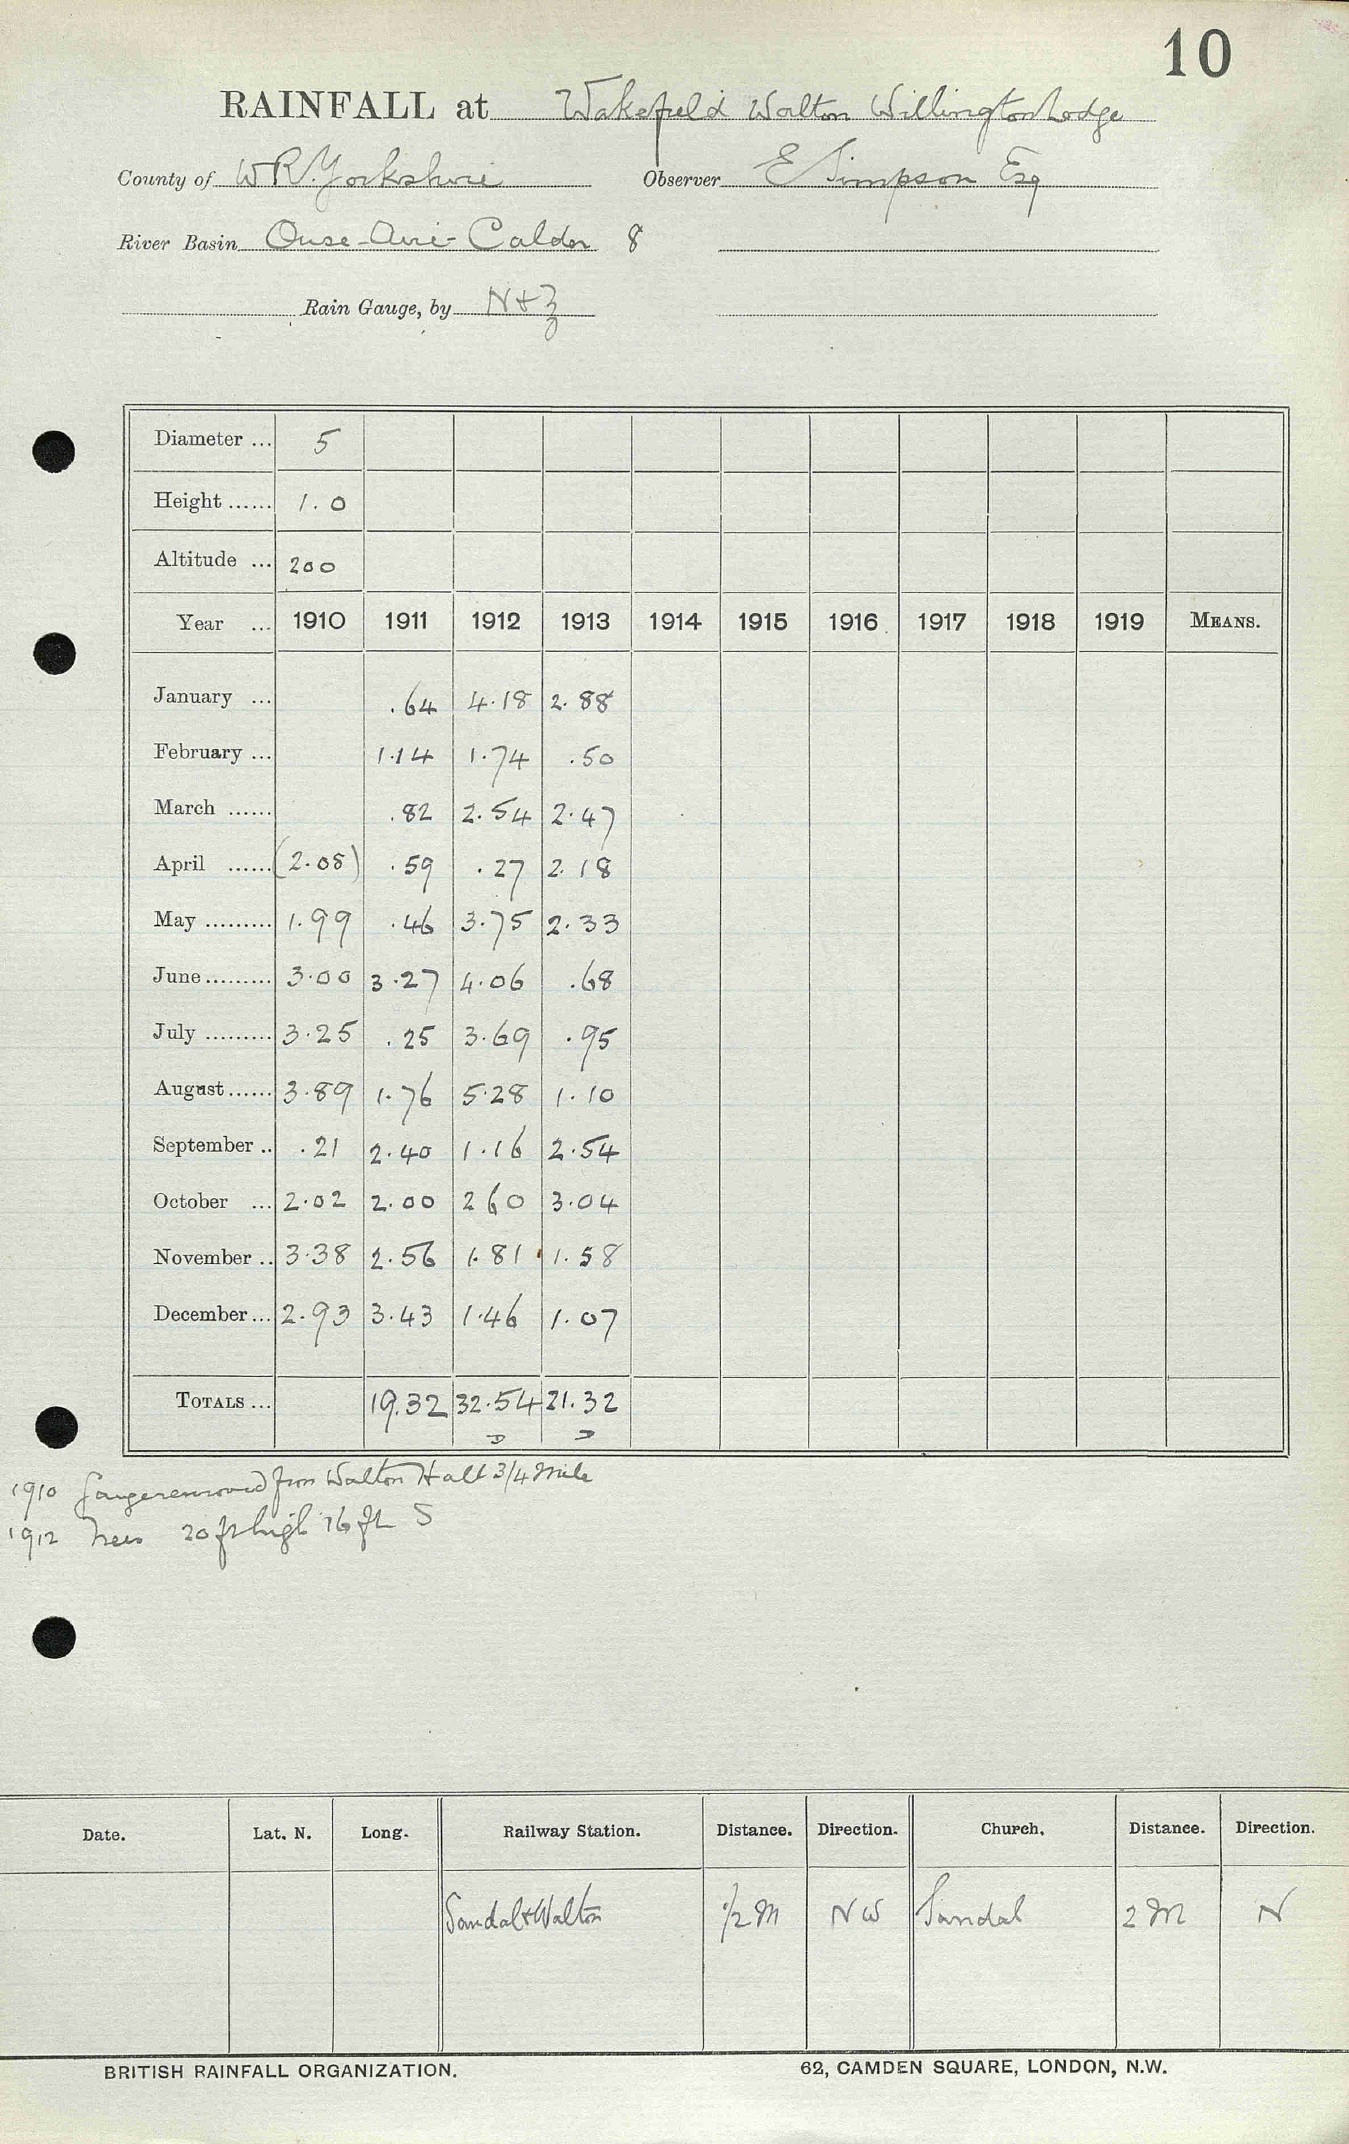 10
RAINFALL at Wakefield Walton Willington Lodge
County of W R. Yorkshire Observer E Simpson Esq
River Basin Ouse-Aire-Calder 8
Rain Gauge, by N & Z
Diameter ... 5
Height ...... 1.0
Altitude ... 200
Year ... 1910 1911 1912 1913 1914 1915 1916 1917 1918 1919 MEANS.
January ... .64 4.18 2.88
February ... 1.14 1.74 .50
March ...... .82 2.54 2.47
April ...... (2.08) .59 .27 2.18
May ......... 1.99 .46 3.75 2.33
June ......... 3.00 3.27 4.06 .68
July ......... 3.25 .25 3.69 .95
August ...... 3.89 1.76 5.28 1.10
September .. .21 2.40 1.16 2.54
October ... 2.02 2.00 2 60 3.04
November .. 3.38 2.56 1.81 1.58
December ... 2.93 3.43 1.46 1.07
TOTALS ... 19.32 32.54 21.32
1910 Gauge removed from Walton Hall 3/4 mile
1912 Trees 20 ft high 16 ft S
Date. Lat. N. Long. Railway Station. Distance. Direction. Church. Distance. Direction.
Sandal & Walton 1/2 M NW Sandal 2 M N
BRITISH RAINFALL ORGANIZATION. 62, CAMDEN SQUARE, LONDON, N.W.